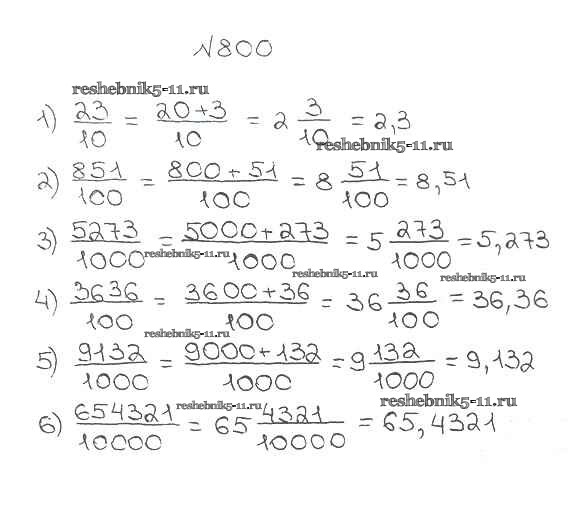 №800
reshebnik5-11.ru
1) 23/10 = 20+3/10 = 2 3/10 = 2,3
reshebnik5-11.ru
2) 851/100 = 800+51/100 = 8 51/100 = 8,51
3) 5273/1000 = 5000+273/1000 = 5 273/1000 = 5,273
reshebnik5-11.ru
reshebnik5-11.ru
reshebnik5-11.ru
4) 3636/100 = 3600+36/100 = 36 36/100 = 36,36
reshebnik5-11.ru
5) 9132/1000 = 9000+132/1000 = 9 132/1000 = 9,132
reshebnik5-11.ru
reshebnik5-11.ru
6) 654321/10000 = 65 4321/10000 = 65,4321
reshebnik5-11.ru